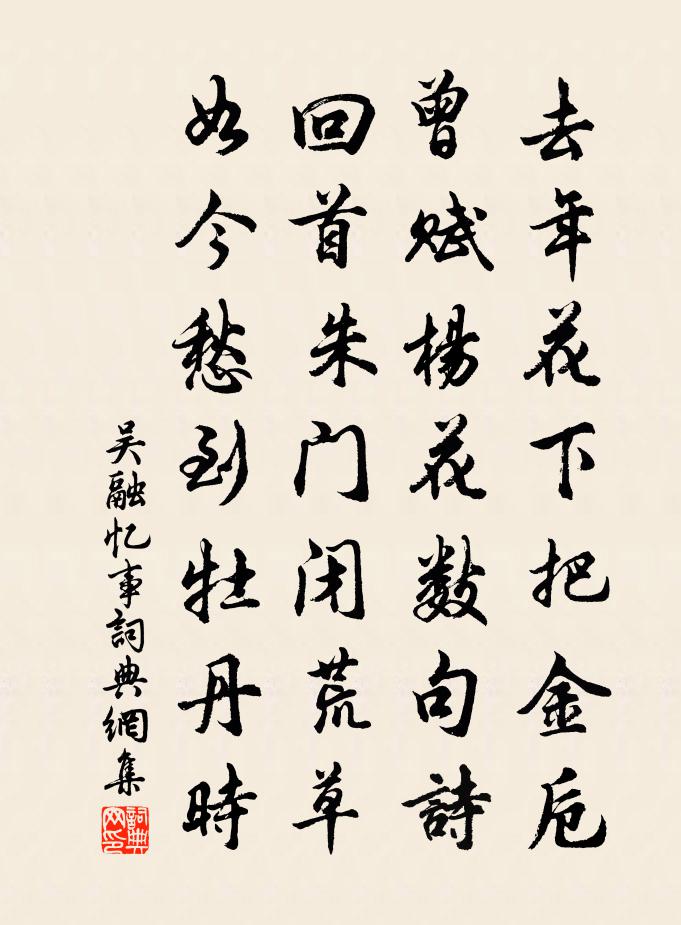 去年花下把金卮
曾赋楊花數句詩
回首朱门闭荒草
如今愁到牡丹時
吴融忆事詞典網集
詞典网印